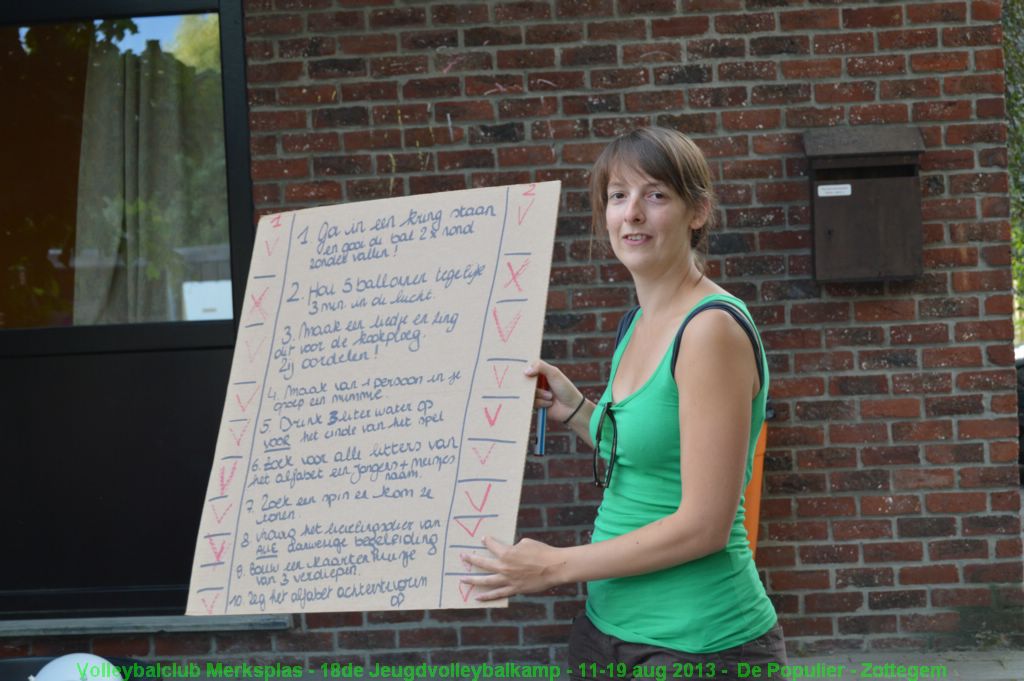 1 2
1 Ga in een kring staan
en gooi de bal 2x rond
zonder vallen!
2. Hou 5 ballonnen tegelijk
3 min in de lucht.
3. Maak een liedje en zing
dit voor de kookploeg.
Zij oordelen!
4. Maak van 1 persoon in je
groep een mummie.
5. Drink 3 liter water op
VOOR het einde van het spel
6. Zoek voor alle letters van
het alfabet een jongens + meisjes
naam.
7. Zoek een spin en kom ze
tonen.
8. Vraag het lievelingsdier van
ALLE aanwezige begeleiding
9. Bouw een kaartenhuisje
van 3 verdiepen.
10. Zeg het alfabet achterstevoren
op
Volleybalclub Merksplas - 18de Jeugdvolleybalkamp - 11-19 aug 2013 - De Populier - Zottegem